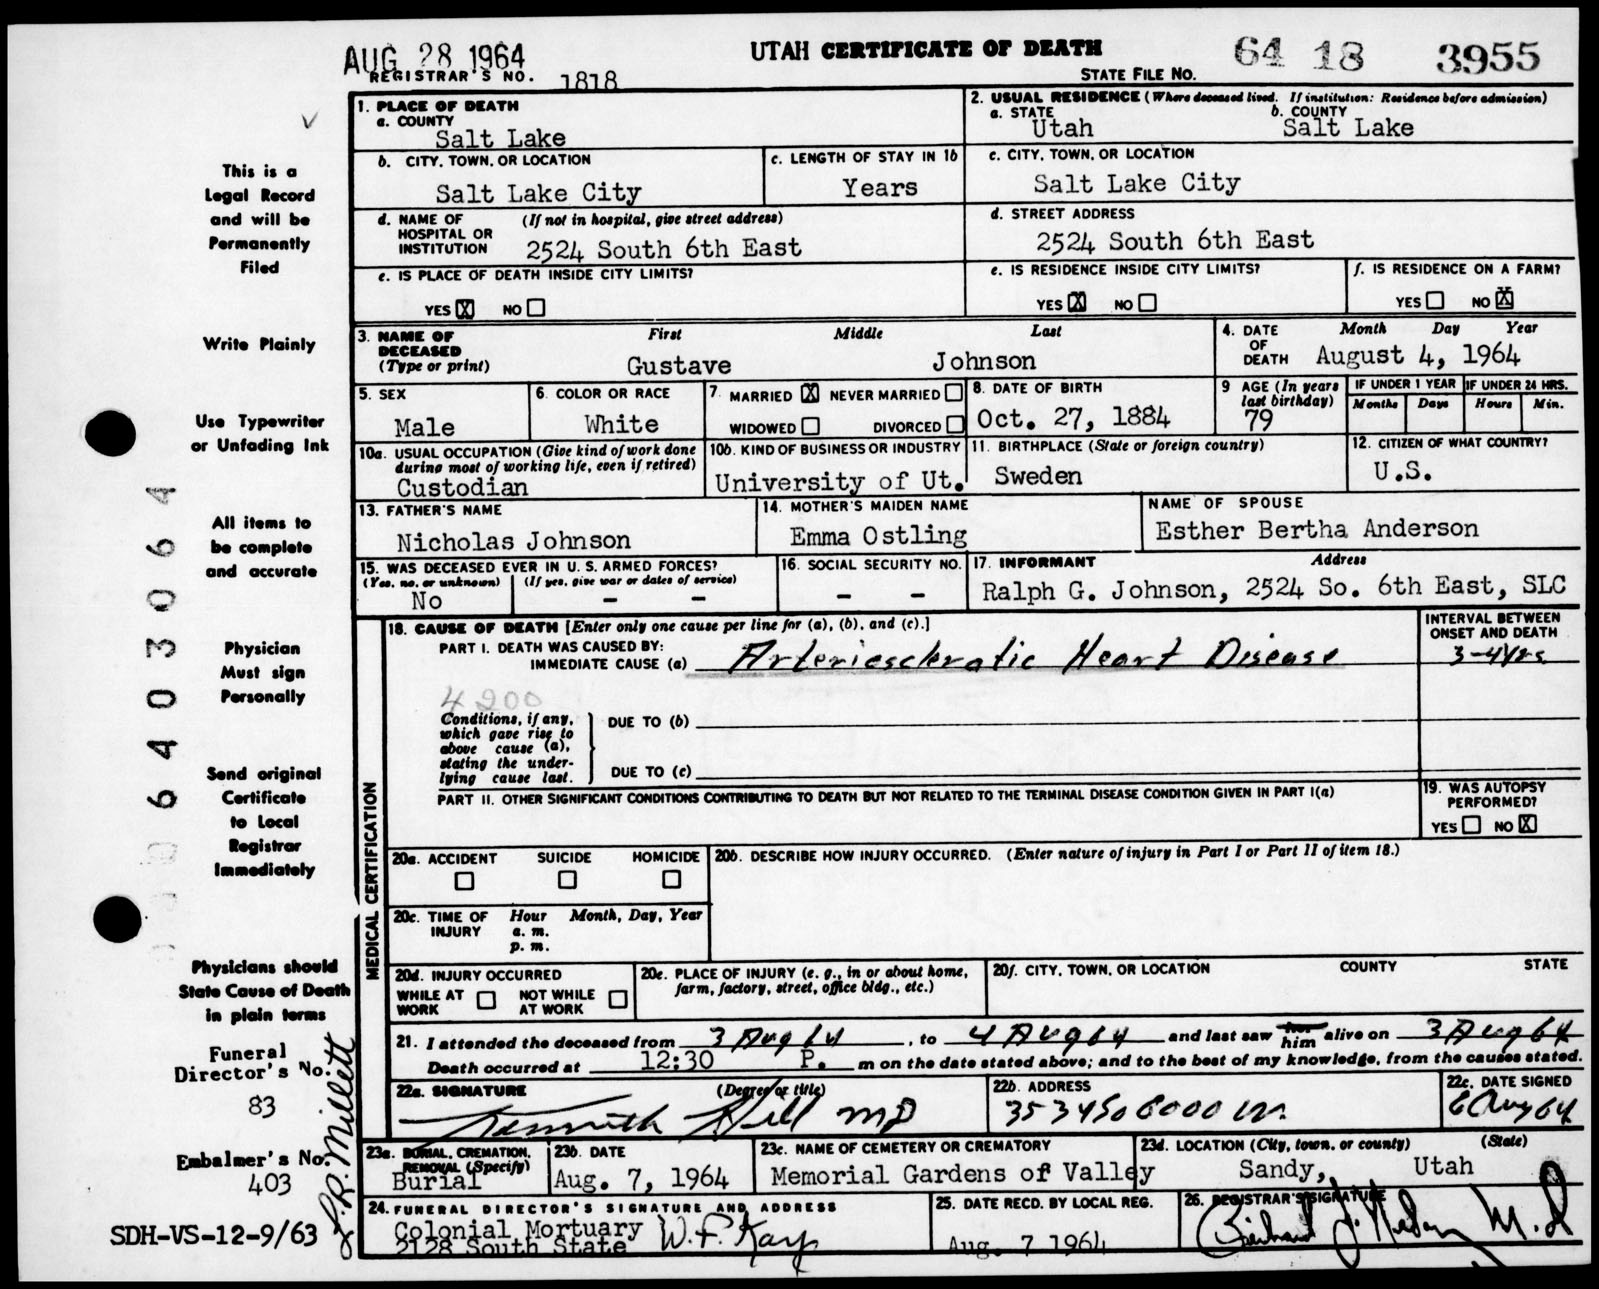 AUG 28 1964
UTAH CERTIFICATE OF DEATH
64 18 3955
REGISTRAR'S NO. 1818
STATE FILE NO.
1. PLACE OF DEATH
a. COUNTY
Salt Lake
2. USUAL RESIDENCE (Where deceased lived. If institution: Residence before admission)
a. STATE
Utah
b. COUNTY
Salt Lake
b. CITY, TOWN, OR LOCATION
Salt Lake City
c. LENGTH OF STAY IN 1b
Years
c. CITY, TOWN, OR LOCATION
Salt Lake City
d. NAME OF HOSPITAL OR INSTITUTION
(If not in hospital, give street address)
2524 South 6th East
d. STREET ADDRESS
2524 South 6th East
e. IS PLACE OF DEATH INSIDE CITY LIMITS?
YES X NO
e. IS RESIDENCE INSIDE CITY LIMITS?
YES X NO
f. IS RESIDENCE ON A FARM?
YES NO X
3. NAME OF DECEASED
(Type or print)
First Middle Last
Gustave Johnson
4. DATE OF DEATH
Month Day Year
August 4, 1964
5. SEX
Male
6. COLOR OR RACE
White
7. MARRIED X NEVER MARRIED
WIDOWED DIVORCED
8. DATE OF BIRTH
Oct. 27, 1884
9 AGE (In years last birthday)
79
IF UNDER 1 YEAR
Months Days
IF UNDER 24 HRS.
Hours Min.
10a. USUAL OCCUPATION (Give kind of work done during most of working life, even if retired)
Custodian
10b. KIND OF BUSINESS OR INDUSTRY
University of Ut.
11. BIRTHPLACE (State or foreign country)
Sweden
12. CITIZEN OF WHAT COUNTRY?
U.S.
13. FATHER'S NAME
Nicholas Johnson
14. MOTHER'S MAIDEN NAME
Emma Ostling
NAME OF SPOUSE
Esther Bertha Anderson
15. WAS DECEASED EVER IN U.S. ARMED FORCES?
(Yes, no, or unknown) (If yes, give war or dates of service)
No - -
16. SOCIAL SECURITY NO.
- -
17. INFORMANT Address
Ralph G. Johnson, 2524 So. 6th East, SLC
MEDICAL CERTIFICATION
18. CAUSE OF DEATH [Enter only one cause per line for (a), (b), and (c).]
INTERVAL BETWEEN ONSET AND DEATH
PART I. DEATH WAS CAUSED BY:
IMMEDIATE CAUSE (a) Arteriosclerotic Heart Disease
3-4 yrs
4200
Conditions, if any, which gave rise to above cause (a), stating the underlying cause last.
DUE TO (b)
DUE TO (c)
PART II. OTHER SIGNIFICANT CONDITIONS CONTRIBUTING TO DEATH BUT NOT RELATED TO THE TERMINAL DISEASE CONDITION GIVEN IN PART I(a)
19. WAS AUTOPSY PERFORMED?
YES NO X
20a. ACCIDENT SUICIDE HOMICIDE
20b. DESCRIBE HOW INJURY OCCURRED. (Enter nature of injury in Part I or Part II of item 18.)
20c. TIME OF INJURY
Hour Month, Day, Year
a. m.
p. m.
20d. INJURY OCCURRED
WHILE AT WORK NOT WHILE AT WORK
20e. PLACE OF INJURY (e. g., in or about home, farm, factory, street, office bldg., etc.)
20f. CITY, TOWN, OR LOCATION COUNTY STATE
21. I attended the deceased from 3 Aug 64, to 4 Aug 64 and last saw her him alive on 3 Aug 64
Death occurred at 12:30 P. m on the date stated above; and to the best of my knowledge, from the causes stated.
22a. SIGNATURE (Degree or title)
Kenneth Hill MD
22b. ADDRESS
22c. DATE SIGNED
6 Aug 64
23a. BURIAL, CREMATION, REMOVAL (Specify)
Burial
23b. DATE
Aug. 7, 1964
23c. NAME OF CEMETERY OR CREMATORY
Memorial Gardens of Valley
23d. LOCATION (City, town, or county) (State)
Sandy, Utah
24. FUNERAL DIRECTOR'S SIGNATURE AND ADDRESS
Colonial Mortuary
2128 South State
W. F. Kay
25. DATE RECD. BY LOCAL REG.
Aug. 7 1964
26. REGISTRAR'S SIGNATURE
M.D
This is a
Legal Record
and will be
Permanently
Filed
Write Plainly
Use Typewriter
or Unfading Ink
All items to
be complete
and accurate
Physician
Must sign
Personally
Send original
Certificate
to Local
Registrar
Immediately
Physicians should
State Cause of Death
in plain terms
Funeral
Director's No.
83
Embalmer's No.
403
J.R. Millett
SDH-VS-12-9/63
6403064